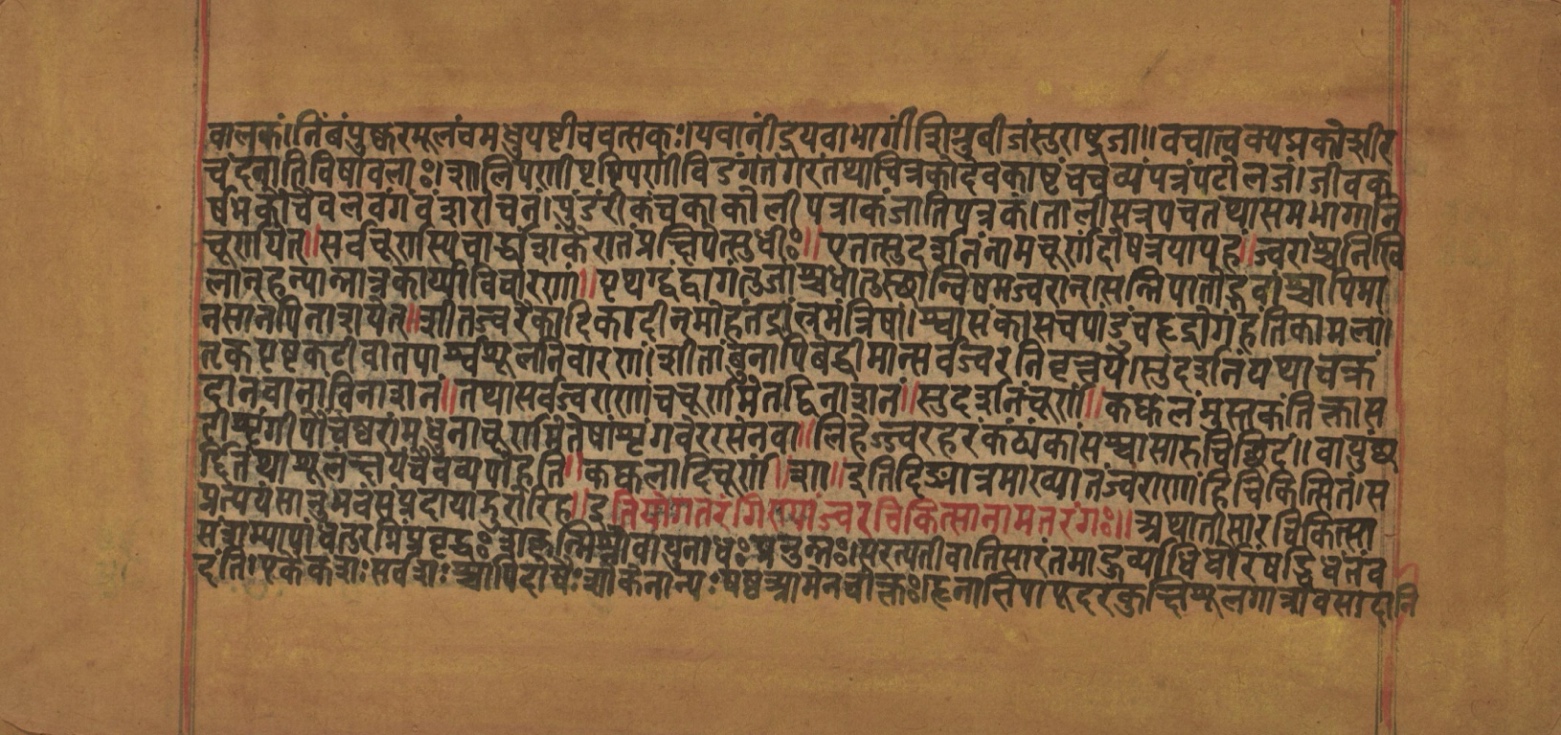 वालकं।निंबंपुष्करमूलंचमधुयष्टीचवत्सकः।यवानींद्रयवाभार्गीशिग्रुबीजंसुराष्ट्रजा॥वचात्वक्पद्मकोशीर
चंदनातिविषाबलाः।शालिपर्णीपृष्टिपर्णीविडंगंतगरंतथाचित्रकोदेवकाष्टंचचव्यंपत्रंपटोलजं।जीवक
र्षभकौचैवलवंगंवंशरोचनं।पुंडरीकंचकाकोलीपत्राकंजातिपत्रकं।तालीसत्रपचतथासमभागानि
चूर्णयेत॥सर्वचूर्णस्यचार्द्धांशंकैरातंप्रक्षिपेत्सुधीः॥एतत्सुदर्शनंनामचूर्णंदोषत्रयापहं॥ज्वरांश्चनिखि
लान्हन्यान्नात्रकार्य्याविचारणा॥पृथग्द्वंद्वागंतुजांश्चधातुस्थान्विषमज्वरान्।सन्निपातोद्भवांश्चापिमा
नसानपिनाशयेत॥शीतज्वरंकादिकादीनमोहंतंद्रांत्नमंत्रिषां।श्वासंकासंचपांडुंचहृद्रोगंहंतिकामलां।
तकपृष्टकटीवातपार्श्वशूलनिवारणं।शीतांबुनापिबेद्धीमान्सर्वज्वरनिवृत्तये।सुदर्शनंयथाचक्रं
दानवानांविनाशनं॥तथासर्वज्वराणांचचूर्णमेतद्विनाशनं॥सुदर्शनचूर्णं॥कट्फलंमुस्तकंतिक्तास
टीशृंगीपौचष्करांमधुनाचूर्णमेतेषांशृंगवेररसेनवा॥लिहेज्ज्वरहरंकंठ्यंकासश्वासारुचिछिदं॥वायुंछ
र्दितथाशूलंक्षयंचैवव्यपोहति॥कट्फलादिचूर्णं॥ञा॥इतिदिङ्मात्रमाख्यातंज्वराणांहिचिकित्सितं।स
प्रत्ययंसानुभवंसंप्रदायाद्गुरोरिह॥इतियोगतरंगिण्यांज्वरचिकित्सानामतरंगः॥अथातीसारचिकित्सा
संशम्यापांधातुरग्निंप्रवृद्धःशकृन्मिश्रोवायुनाधःप्रनुन्नः।सरत्यतीवातिसारंतमाहुर्व्याधिंघोरंषड्विधंतंव
दंति।एकैकशःसर्वशःश्चापिदोषैःशोकेनान्यःषष्ठआमेनचोक्तः।हृनाभिपायूदरकुक्षिशूलगात्रावसादानि